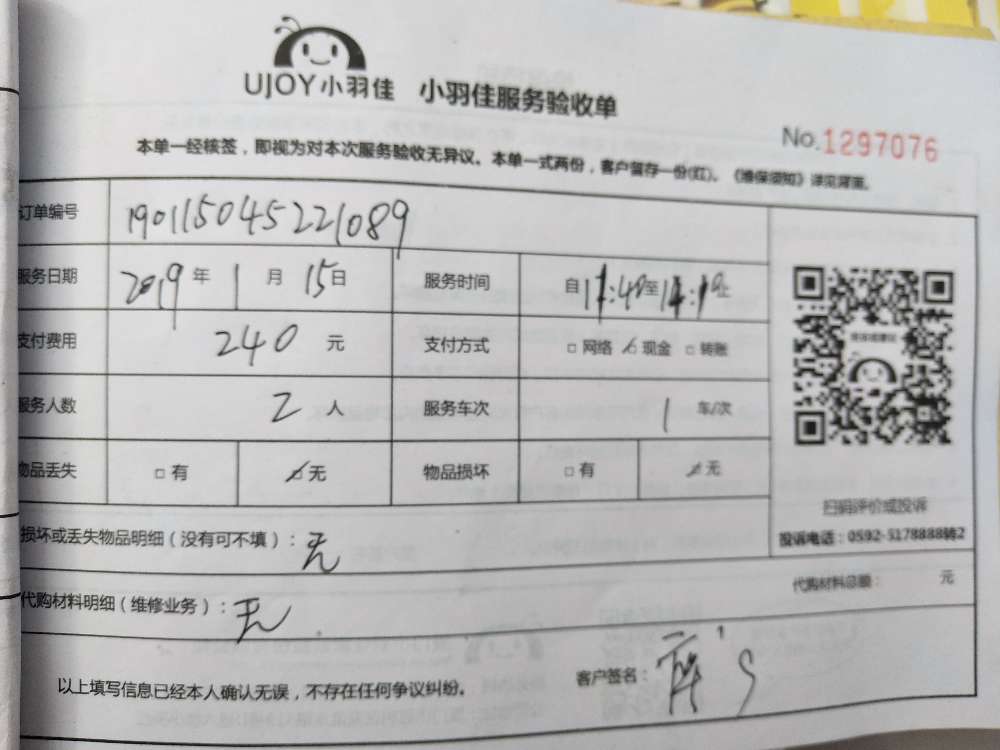 UJOY小羽佳 小羽佳服务验收单
No.1297076
本单一经核签，即视为对本次服务验收无异议。本单一式两份，客户留存一份(红)。《维保须知》详见背面。
订单编号 190115045221089
服务日期 2019年1月15日 服务时间 自11:40至14:10止
支付费用 240元 支付方式 □网络 ☑现金 □转账
服务人数 2人 服务车次 1车/次
物品丢失 □有 ☑无 物品损坏 □有 ☑无
扫码评价或投诉
投诉电话：0592-5178888转2
损坏或丢失物品明细（没有可不填）：无
代购材料总额： 元
代购材料明细（维修业务）：无
以上填写信息已经本人确认无误，不存在任何争议纠纷。 客户签名：